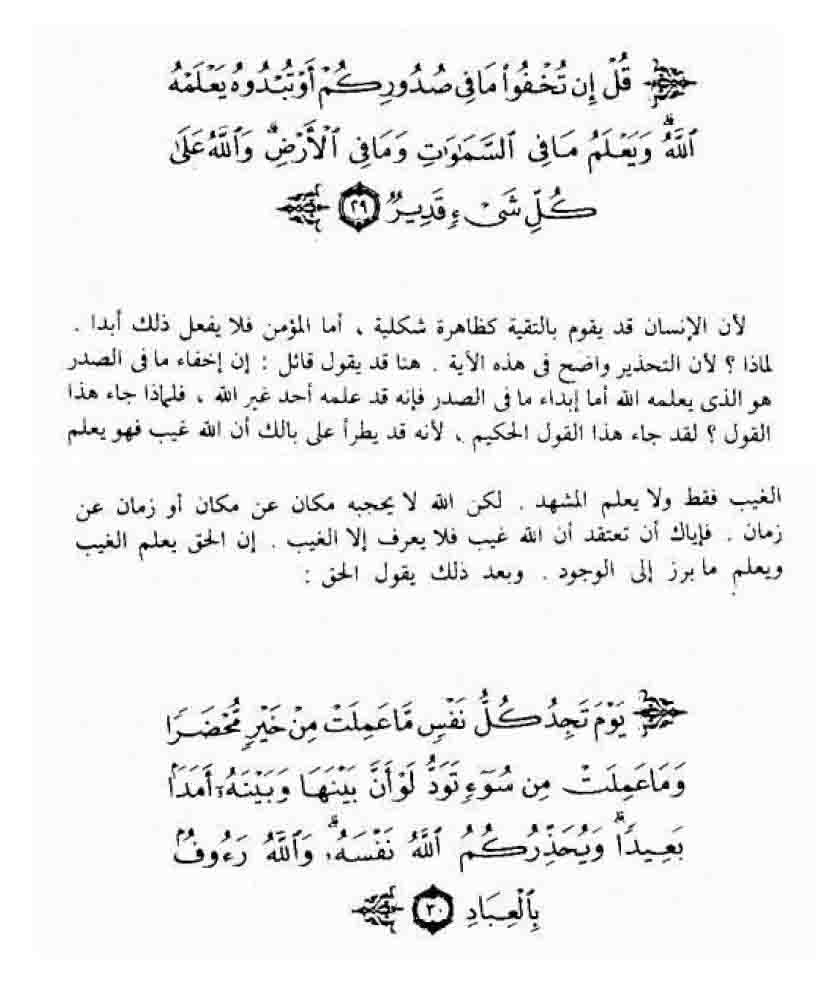 قُلْ إِن تُخْفُوا۟ مَا فِى صُدُورِكُمْ أَوْ تُبْدُوهُ يَعْلَمْهُ
ٱللَّهُ ۗ وَيَعْلَمُ مَا فِى ٱلسَّمَـٰوَٰتِ وَمَا فِى ٱلْأَرْضِ ۗ وَٱللَّهُ عَلَىٰ
كُلِّ شَىْءٍ قَدِيرٌ ٢٩
لأن الإنسان قد يقوم بالتقية كظاهرة شكلية ، أما المؤمن فلا يفعل ذلك أبدا .
لماذا ؟ لأن التحذير واضح فى هذه الآية . هنا قد يقول قائل : إن إخفاء ما فى الصدر
هو الذى يعلمه الله أما إبداء ما فى الصدر فإنه قد علمه أحد غير الله ، فلماذا جاء هذا
القول ؟ لقد جاء هذا القول الحكيم ، لأنه قد يطرأ على بالك أن الله غيب فهو يعلم
الغيب فقط ولا يعلم المشهد . لكن الله لا يحجبه مكان عن مكان أو زمان عن
زمان . فإياك أن تعتقد أن الله غيب فلا يعرف إلا الغيب . إن الحق يعلم الغيب
ويعلم ما برز إلى الوجود . وبعد ذلك يقول الحق :
يَوْمَ تَجِدُ كُلُّ نَفْسٍ مَّا عَمِلَتْ مِنْ خَيْرٍ مُّحْضَرًا
وَمَا عَمِلَتْ مِن سُوٓءٍ تَوَدُّ لَوْ أَنَّ بَيْنَهَا وَبَيْنَهُۥٓ أَمَدًۢا
بَعِيدًا ۗ وَيُحَذِّرُكُمُ ٱللَّهُ نَفْسَهُۥ ۗ وَٱللَّهُ رَءُوفٌۢ
بِٱلْعِبَادِ ٣٠